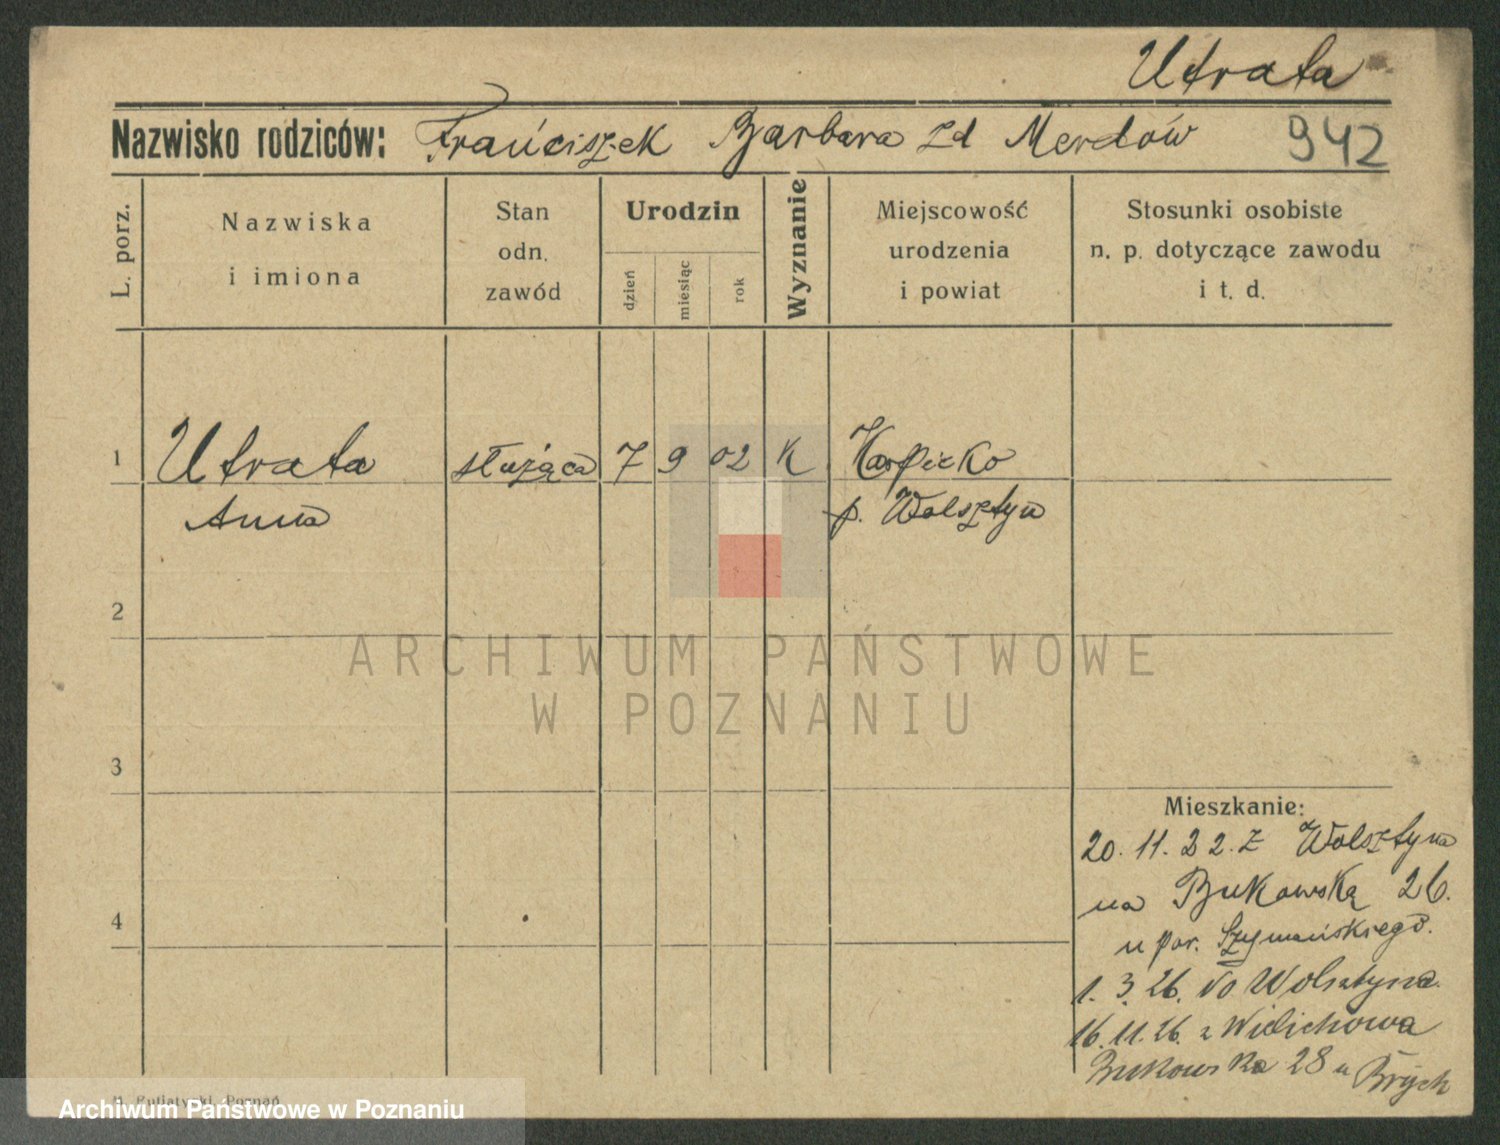 Utrata
Nazwisko rodziców: Franciszek Barbara zd Merdów 942
L. porz.
Nazwiska
i imiona
Stan
odn.
zawód
Urodzin
dzień
miesiąc
rok
Wyznanie
Miejscowość
urodzenia
i powiat
Stosunki osobiste
n. p. dotyczące zawodu
i t. d.
1 Utrata służąca 7 9 02 K Karpicko
Anna p. Wolsztyn
2
3
4
Mieszkanie:
20. 11. 22. z Wolsztyna
na Bukowską 26.
u por. Szymańskiego.
1. 3. 26. do Wolsztyna.
16. 11. 26. z Wielichowa
Bukowska 28 u
ARCHIWUM PAŃSTWOWE
W POZNANIU
Poznań
Archiwum Państwowe w Poznaniu